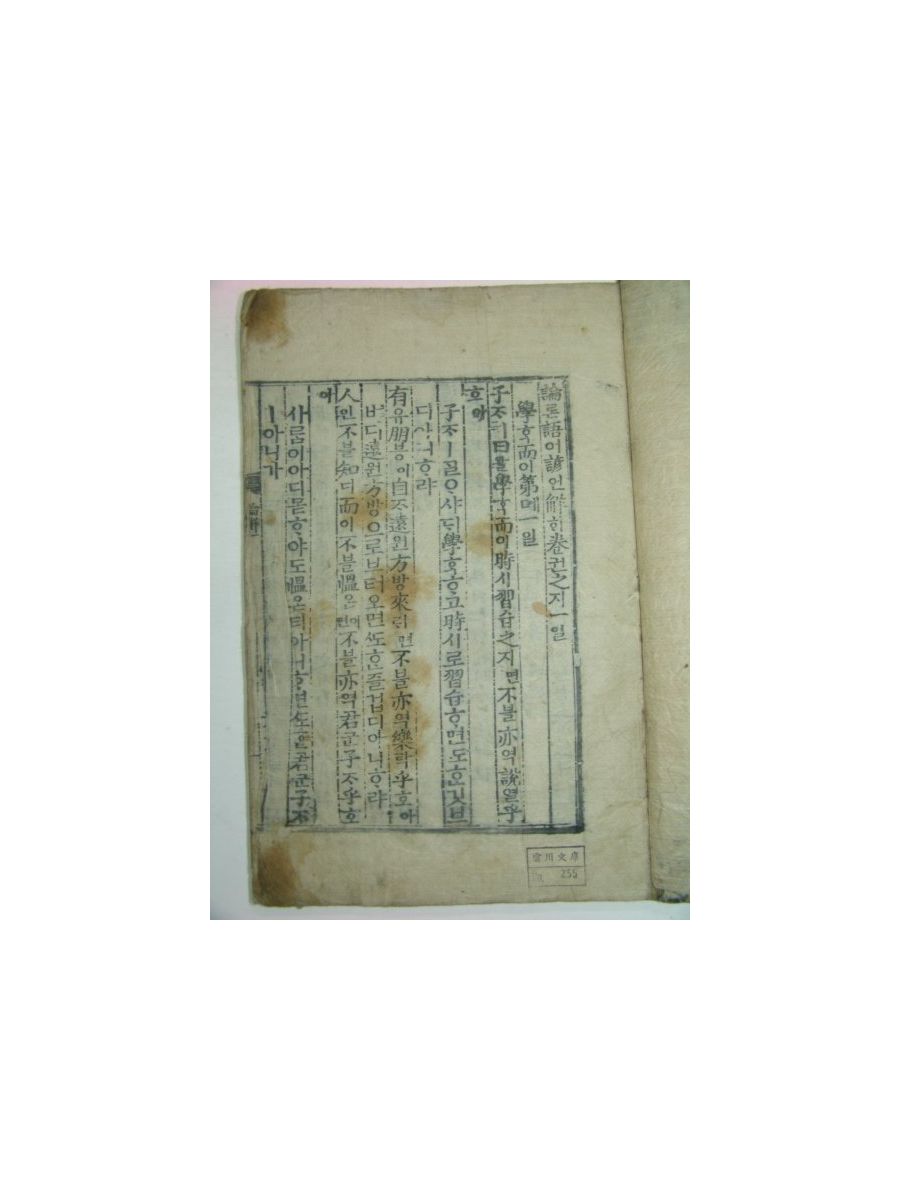 論론語어諺언解ᄒᆡ卷권之지一일
學ᄒᆞᆨ而이第뎨一일
子ᄌᆞㅣ曰왈學ᄒᆞᆨ而이時시習습之지면不블亦역說열乎
호아
子ᄌᆞㅣᄀᆞᆯᄋᆞ샤ᄃᆡ學ᄒᆞᆨᄒᆞ고時시로習습ᄒᆞ면ᄯᅩᄒᆞᆫ깃브
디아니ᄒᆞ랴
有유朋붕이自ᄌᆞ遠원方방來ᄅᆡ면不블亦역樂락乎호아
버디遠원方방으로브터오면ᄯᅩᄒᆞᆫ즐겁디아니ᄒᆞ랴
人인不블知디而이不블慍온이면不블亦역君군子ᄌᆞ乎호
아
사ᄅᆞᆷ이아디몯ᄒᆞ야도慍온티아니ᄒᆞ면ᄯᅩᄒᆞᆫ君군子ᄌᆞ
ㅣ아니가
川文庫
255